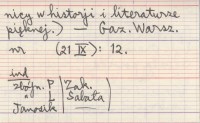 nicy w historji i literaturze
pięknej.) — Gaz. Warsz.
nr (21 IX): 12.
ind
zbójn. P Zak.
a Sabała
Janosik